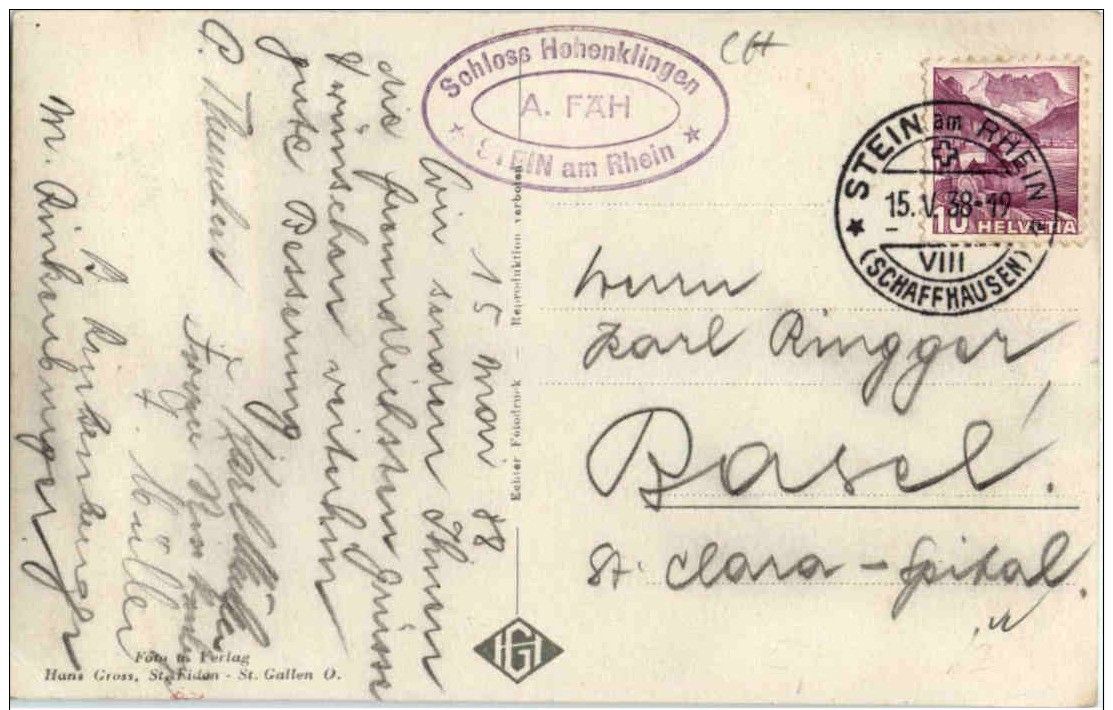 Schloss Hohenklingen
A. FÄH
STEIN am Rhein
STEIN am RHEIN
15.V.38-19
VIII
(SCHAFFHAUSEN)
10 HELVETIA
15 Mai 38
Wir senden Ihnen
die freundlichsten Grüsse
& wünschen weiterhin
gute Besserung
Karl Müller
P.
Müller
M.
Herrn
Karl Ringger
Basel!
St. Clara-Spital.
Echter Fotodruck — Reproduktion verboten
HG
Foto u. Verlag
Hans Gross, St. Fiden - St. Gallen O.